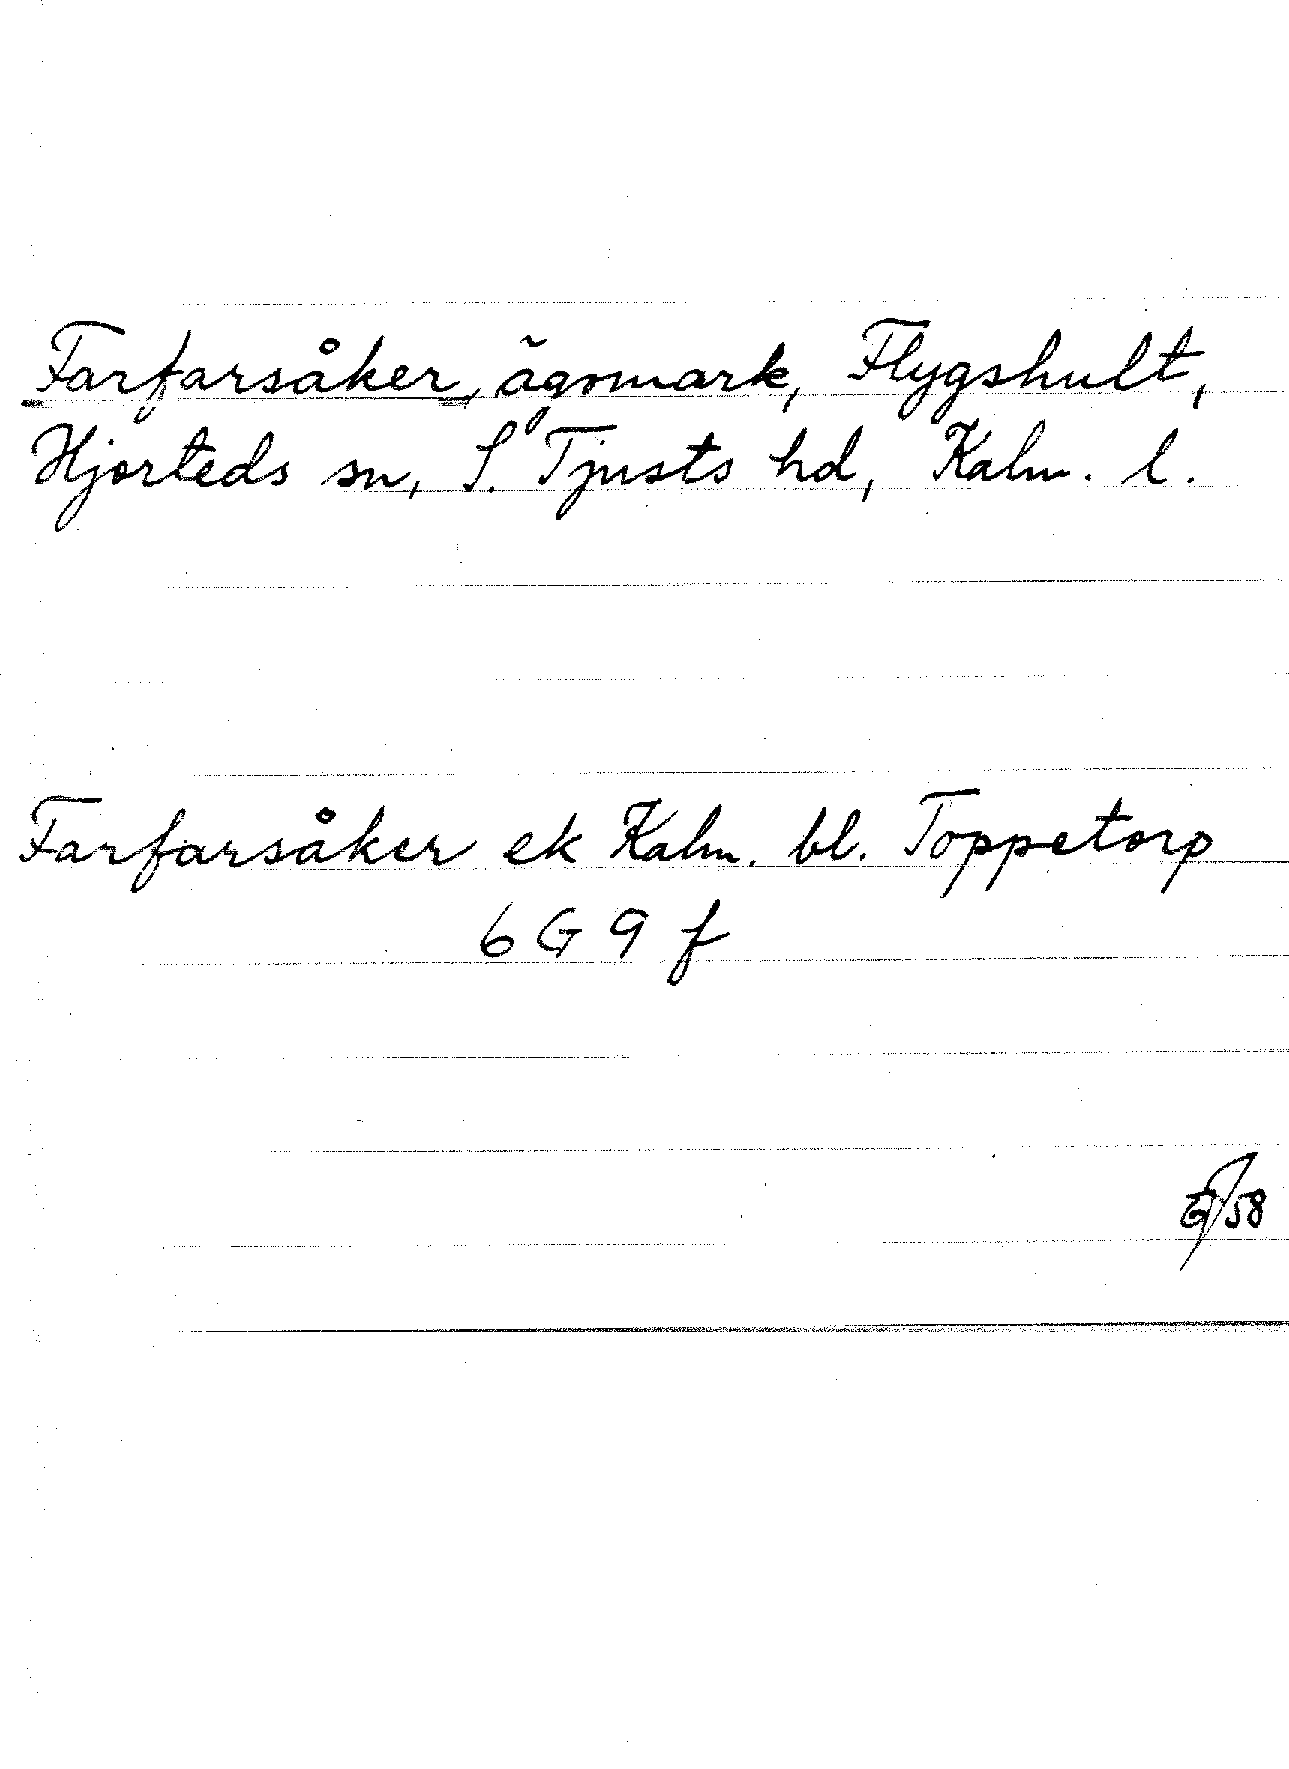 Farfarsåker, ägomark, Flygshult,
Hjorteds sn, S. Tjusts hd, Kalm. l.
Farfarsåker ek Kalm. bl. Toppetorp
6 G 9 f
/58